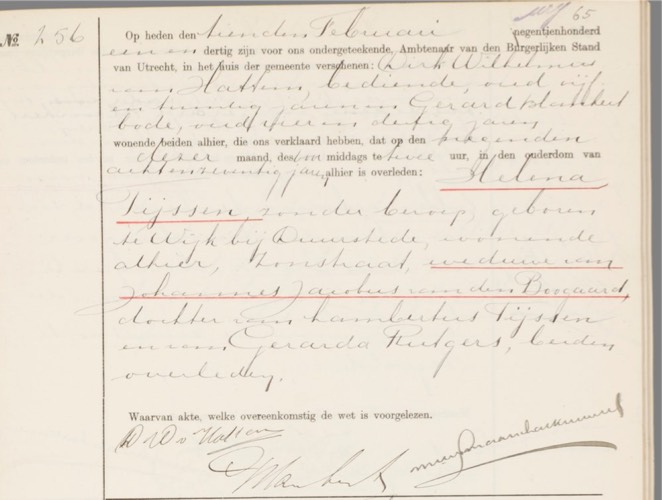 65
No. 256 Op heden den tienden Februari negentienhonderd
een en dertig zijn voor ons ondergeteekende, Ambtenaar van den Burgerlijken Stand
van Utrecht, in het huis der gemeente verschenen: Dirk Wilhelmus
van Hattem, bediende, oud vijf
en twintig jaren en Gerard Lambert
bode, oud vier en dertig jaren,
wonende beiden alhier, die ons verklaard hebben, dat op den negenden
dezer maand, des middags te twee uur, in den ouderdom van
achtenzeventig jaren, alhier is overleden: Helena
Tijssen, zonder beroep, geboren
te Wijk bij Duurstede, wonende
alhier, straat, weduwe van
Johannes Jacobus van den Boogaard,
dochter van Lambertus Tijssen
en van Gerarda Rutgers, beiden
overleden.
Waarvan akte, welke overeenkomstig de wet is voorgelezen.